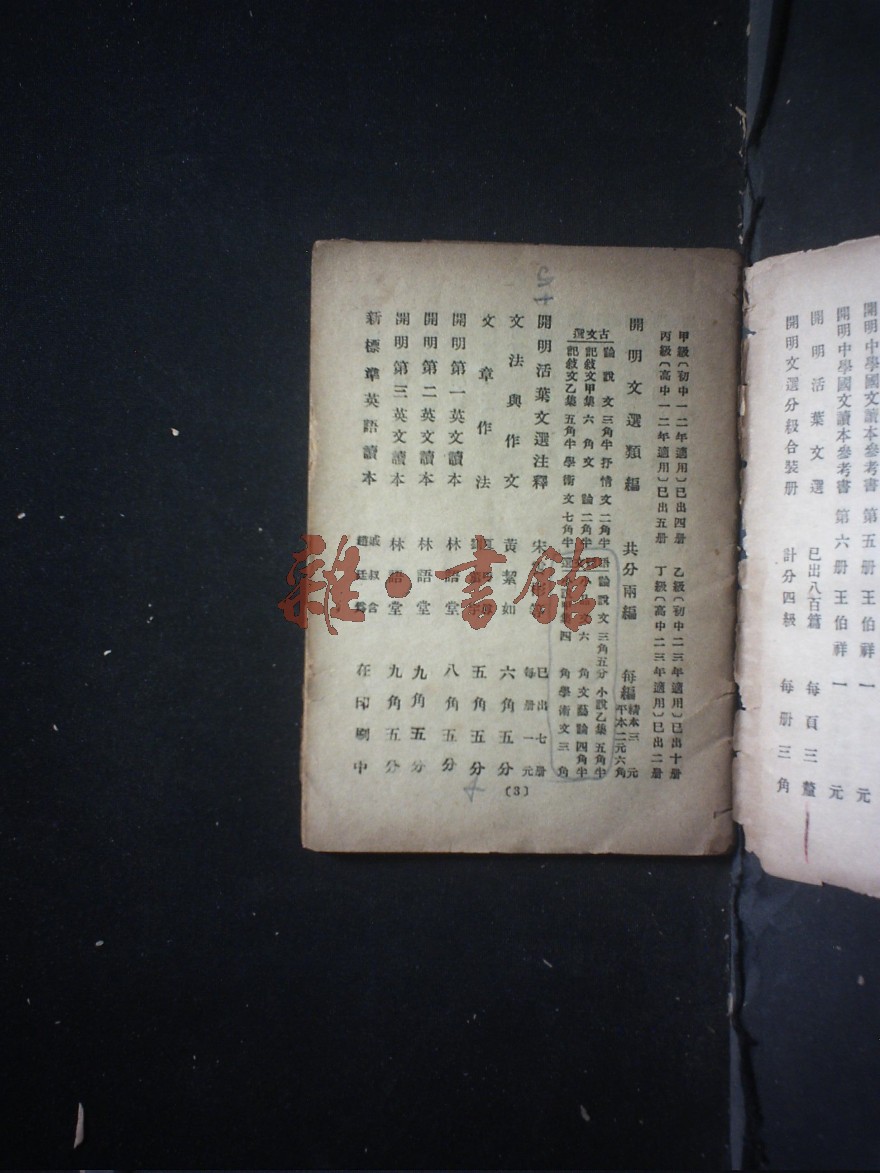 開明中學國文讀本參考書 第五册 王伯祥 一元
開明中學國文讀本參考書 第六册 王伯祥 一元
開明活葉文選 已出八百篇 每頁三釐
開明文選分級合裝册 計分四級 每册三角
甲級〔初中一二年適用〕已出四册 乙級〔初中二三年適用〕已出十册
丙級〔高中一二年適用〕已出五册 丁級〔高中二三年適用〕已出二册
開明文選類編 共分兩編 每編精本三元平本二元六角
古文選
論說文三角半 抒情文二角半
記敍文甲集六角 文論二角半
記敍文乙集五角半 學術文七角半
語 論說文三角五分 小說乙集五角半
文六角 文藝論四角半
選 四角 學術文三角
開明活葉文選注釋 宋 已出七册每册一元
文法與作文 黃絜如 六角五分
文章作法 五角五分
開明第一英文讀本 林語堂 八角五分
開明第二英文讀本 林語堂 九角五分
開明第三英文讀本 林語堂 九角五分
新標準英語讀本 在印刷中
(3)
雜·書館